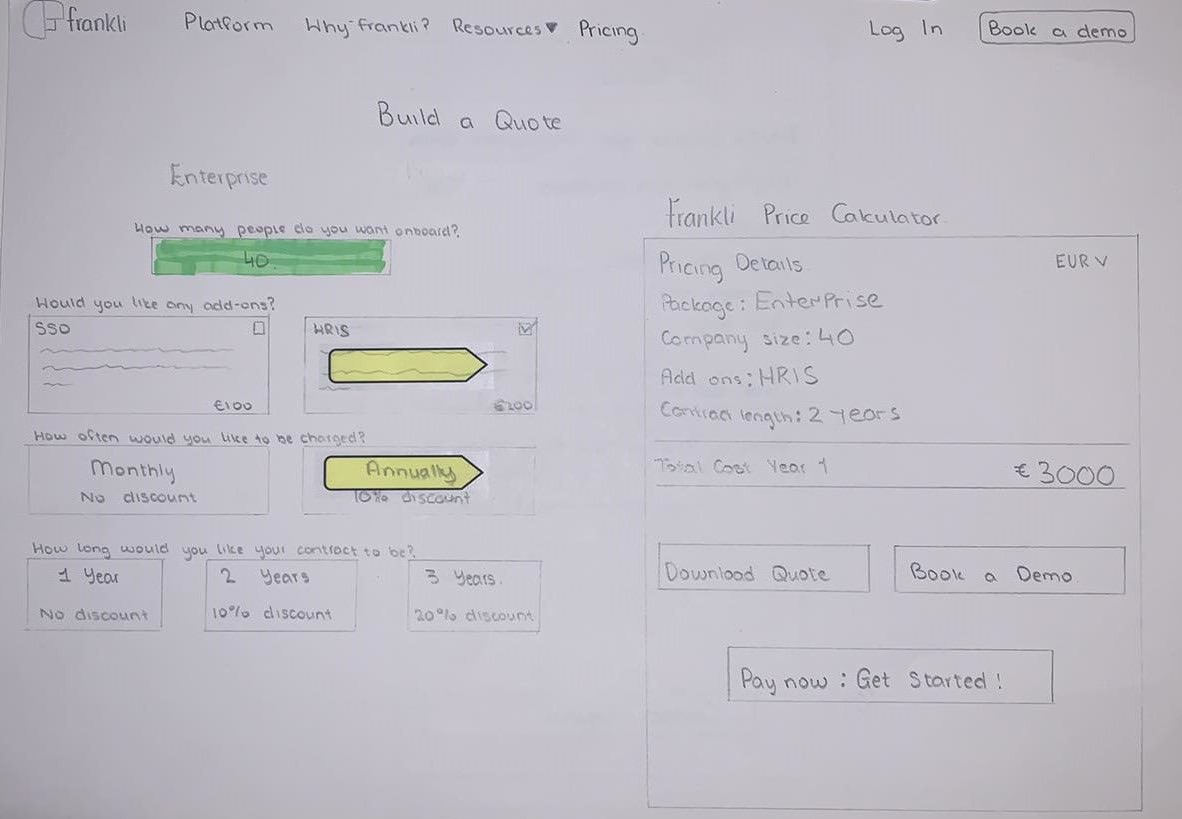 frankli Platform Why frankli? Resources▼ Pricing Log In Book a demo
Build a Quote
Enterprise
How many people do you want onboard?
40
Would you like any add-ons?
SSO
€100
HRIS
€200
How often would you like to be charged?
Monthly
No discount
Annually
10% discount
How long would you like your contract to be?
1 Year
No discount
2 Years
10% discount
3 Years.
20% discount
Frankli Price Calculator
Pricing Details EUR V
Package: Enterprise
Company size: 40
Add ons: HRIS
Contract length: 2 years
Total Cost Year 1 € 3000
Download Quote
Book a Demo
Pay now : Get Started !